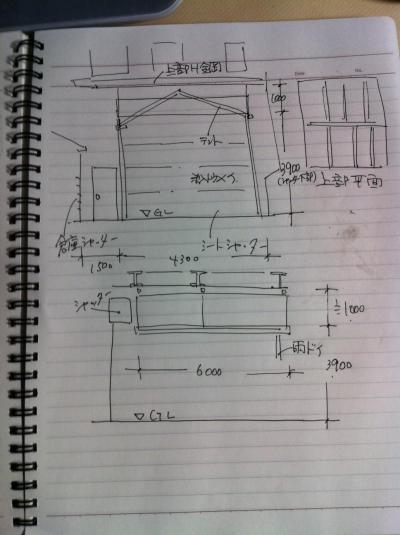 上部H鋼
1000
テント
3900
(シャッター下部)
上部平面
▽GL
倉庫シャッター
シートシャッター
1500
4300
シャッター
≒1000
雨ドイ
6000
3900
▽GL